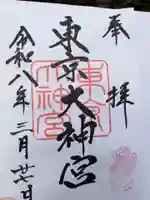 奉拝
東京大神宮
令和八年三月日
東京
大神宮